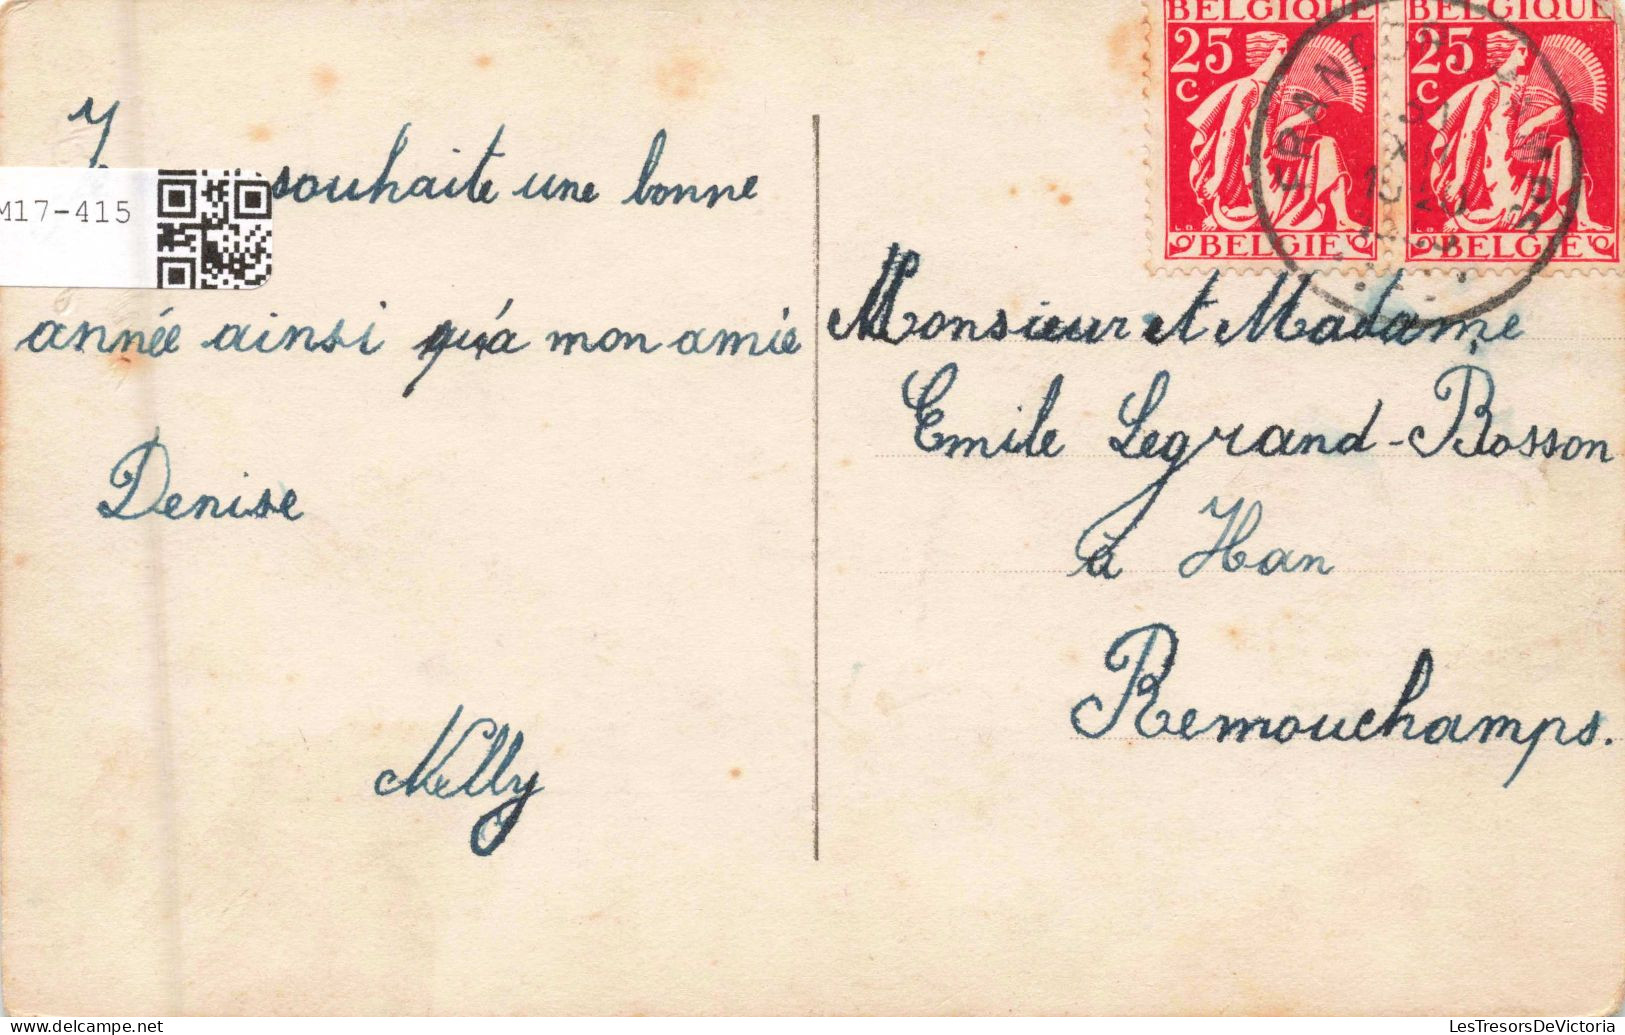 souhaite une bonne
année ainsi qu'a mon amie
Denise
Nelly
M17-415
BELGIQUE BELGIQUE
25 25
C C
BELGIE BELGIE
Monsieur et Madame
Emile Legrand-Bosson
à Han
Remouchamps.
LesTresorsDeVictoria